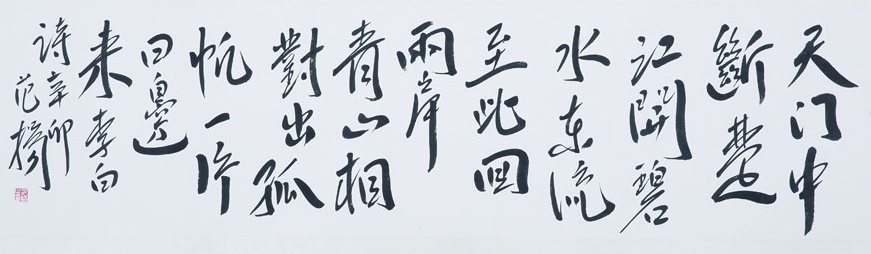 天门中
斷楚
江開碧
水东流
至此囬
兩岸
青山相
對出孤
帆一片
日邊
来李白
诗辛卯
范